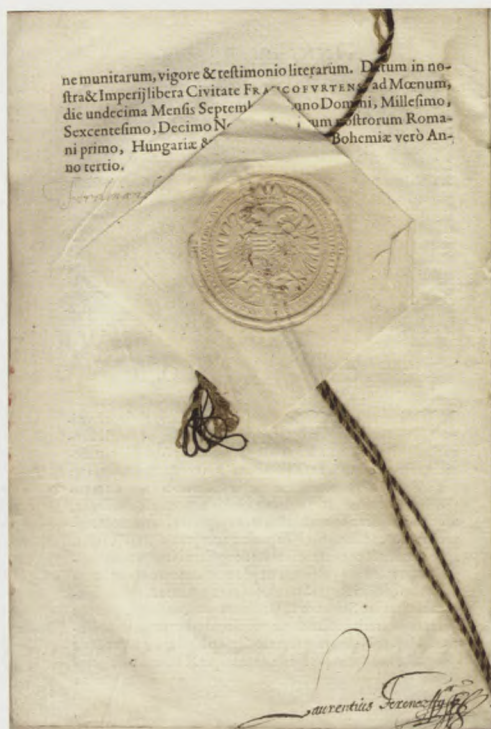 ne munitarum, vigore & teſtimonio literarum. Datum in no-
ſtra & Imperij libera Civitate FRANCOFVRTENS, ad Mœnum,
die undecima Menſis Septemb Anno Domini, Milleſimo,
Sexcenteſimo, Decimo No rum noſtrorum Roma-
ni primo, Hungariæ & Bohemiæ verò An-
no tertio.
Ferdinand
Laurentius Ferencz